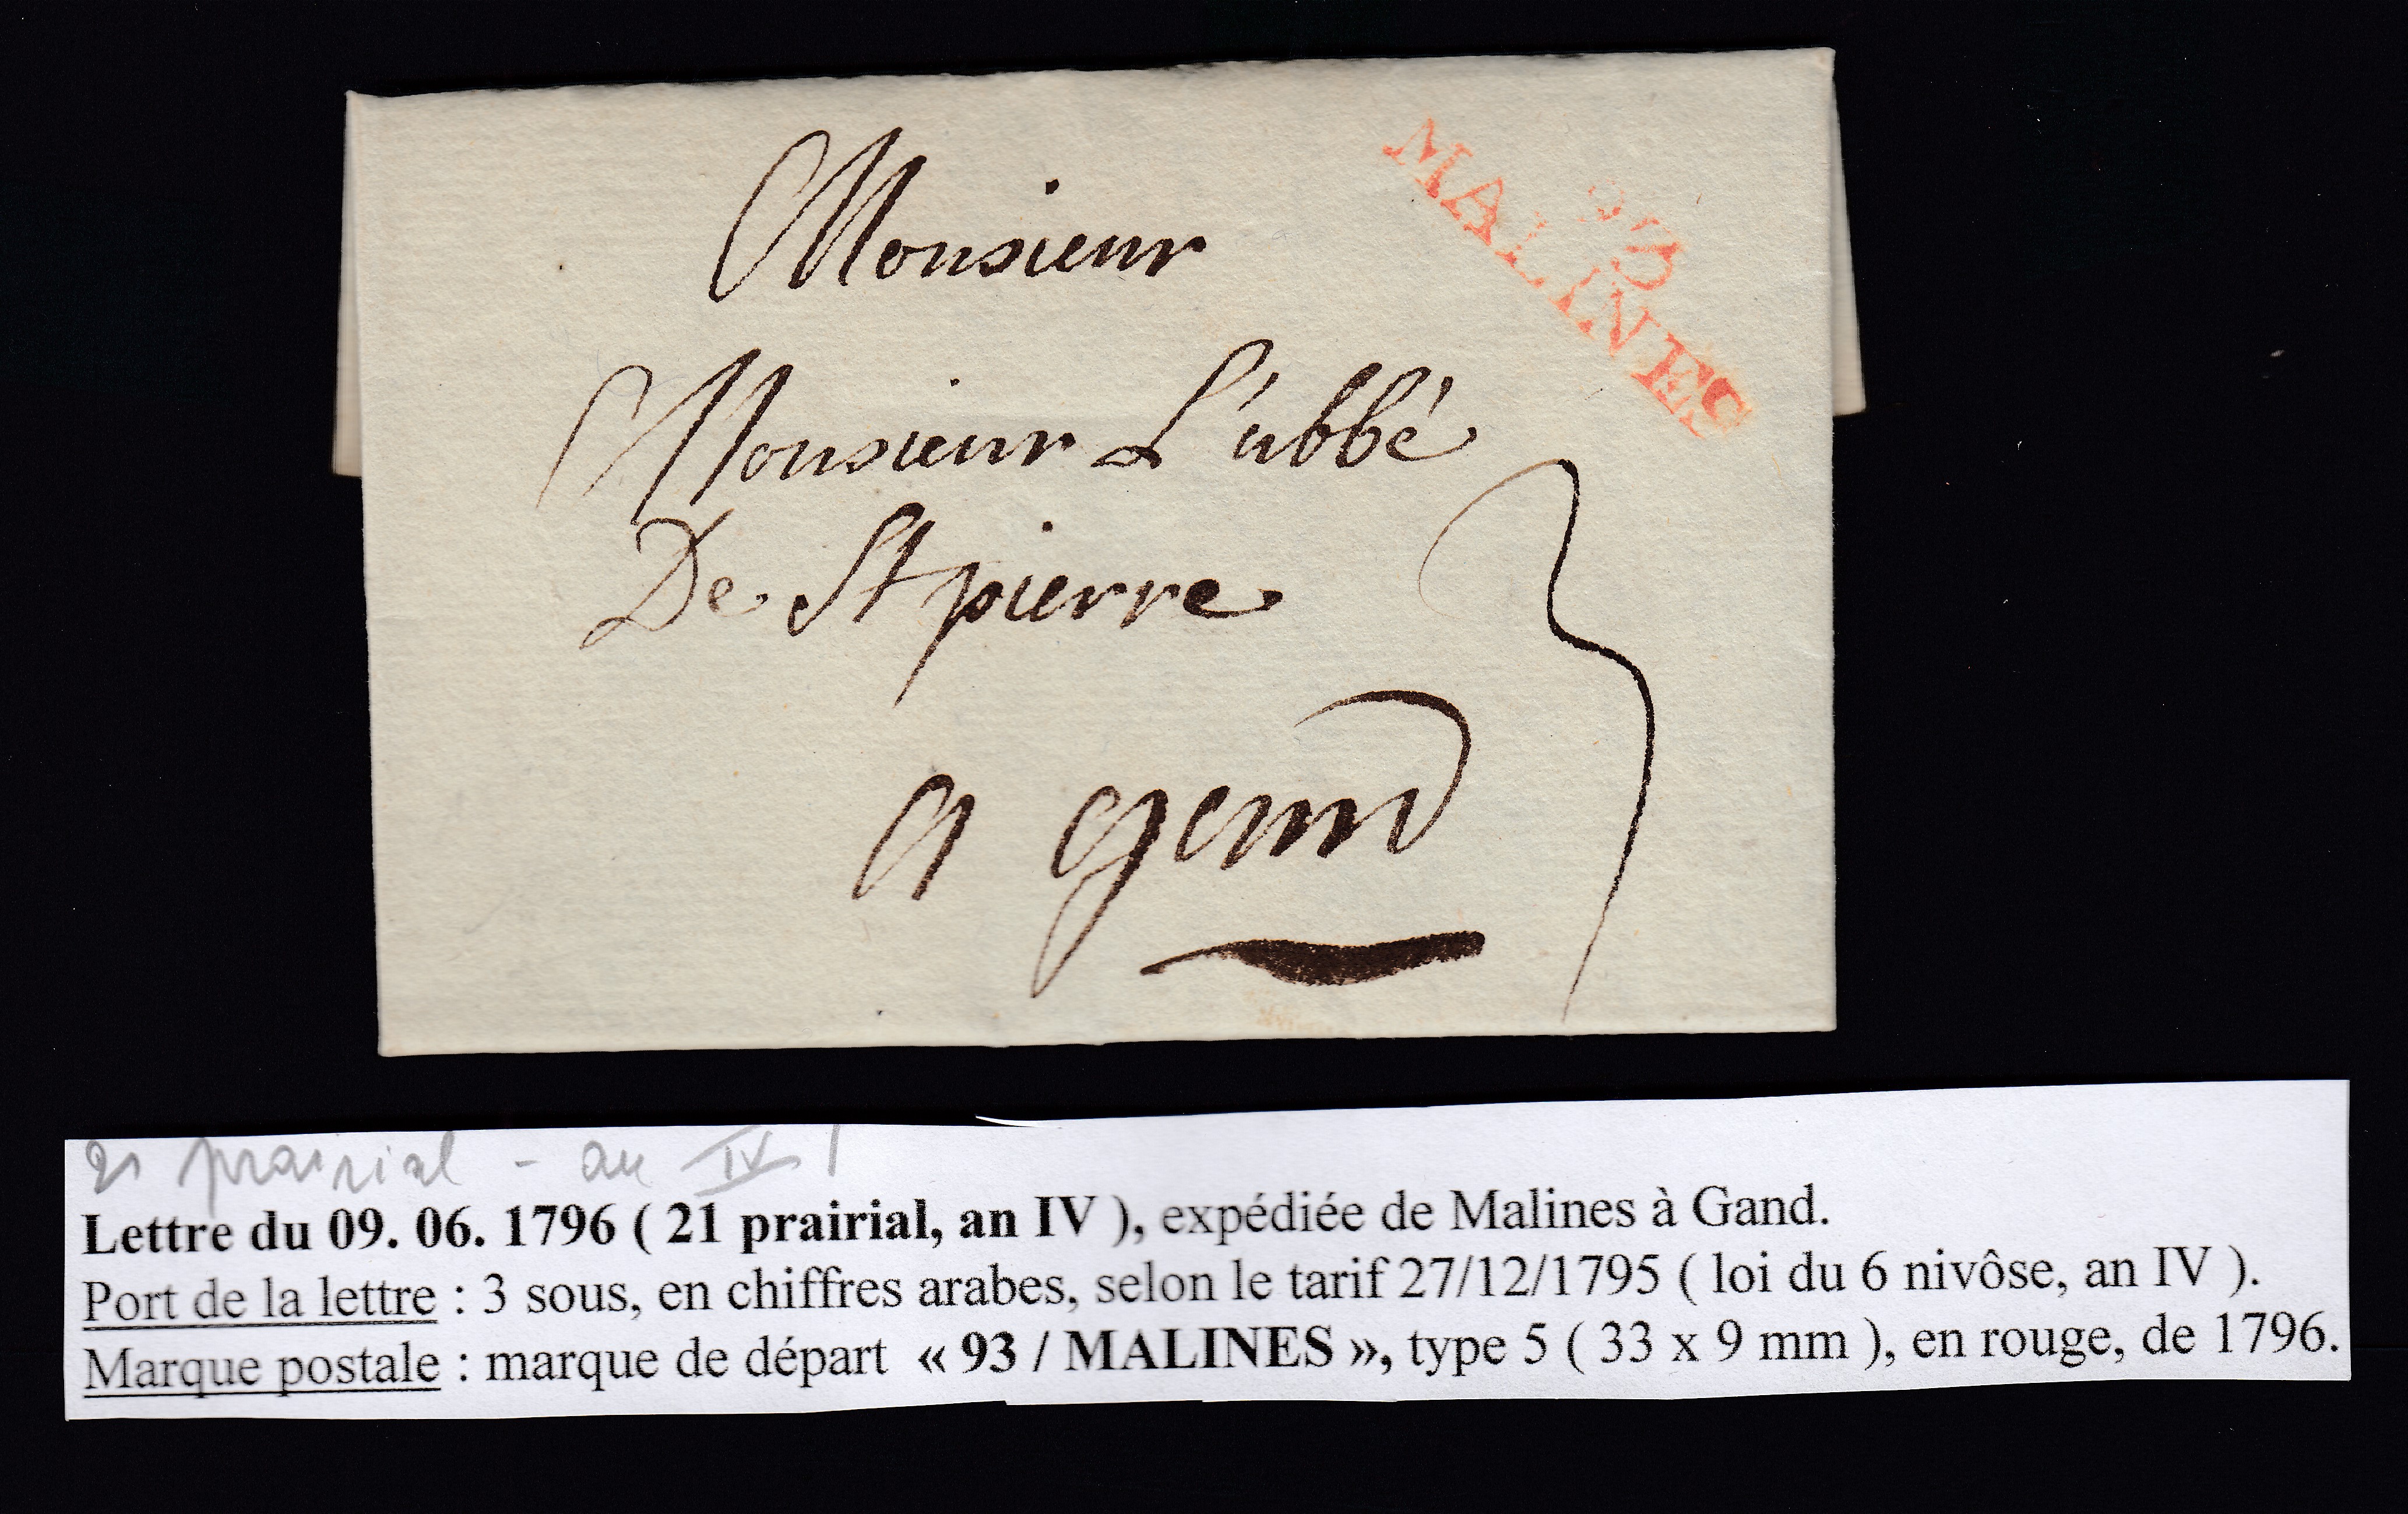 Monsieur
93
MALINES
Monsieur L'abbé
De St pierre
3
a gand
21 prairial - an IV
Lettre du 09. 06. 1796 ( 21 prairial, an IV ), expédiée de Malines à Gand.
Port de la lettre : 3 sous, en chiffres arabes, selon le tarif 27/12/1795 ( loi du 6 nivôse, an IV ).
Marque postale : marque de départ « 93 / MALINES », type 5 ( 33 x 9 mm ), en rouge, de 1796.